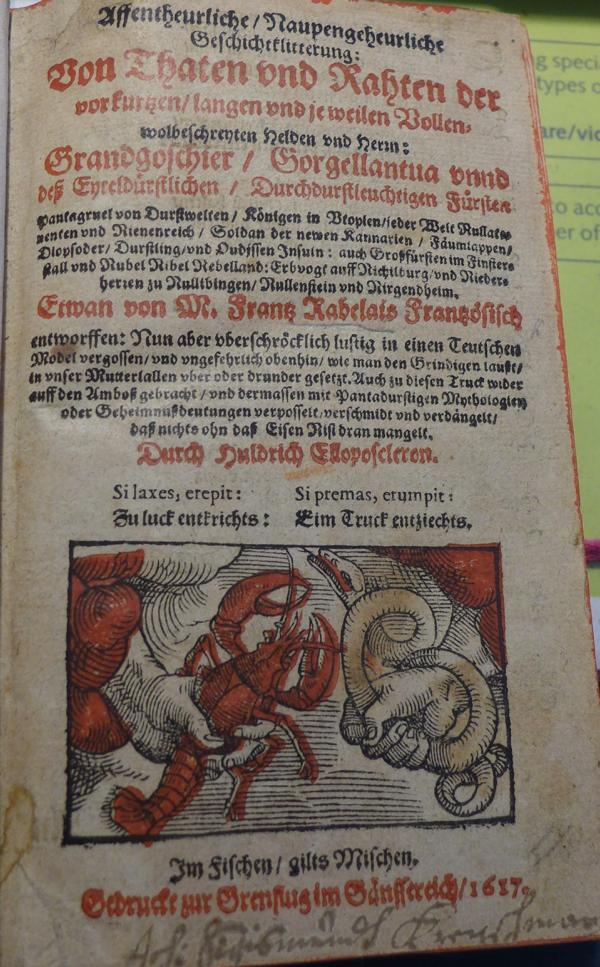 Affentheurliche / Naupengeheurliche
Geschichtklitterung:
Von Thaten vnd Rahten der
vor kurtzen / langen vnd je weilen Vollen-
wolbeschreyten Helden vnd Herrn:
Grandgoschier / Gorgellantua vnnd
deß Eyteldürstlichen / Durchdurstleuchtigen Fürsten
Pantagruel von Durstwelten / Königen in Vtopien / jeder Welt Nullate-
nenten vnd Nienenreich / Soldan der newen Kannarien / Fäumlappen /
Dipsoder / Durstling / vnd Oudissen Insuln: auch Großfürsten im Finster-
stall vnd Nubel Nibel Nebelland: Erbvogt auff Nichilburg / vnd Nieder-
herren zu Nullibingen / Nullenstein vnd Nirgendheim.
Etwan von M. Frantz Rabelais Frantzösisch
entworffen: Nun aber vberschröcklich lustig in einen Teutschen
Model vergossen / vnd vngefehrlich obenhin / wie man den Grindigen laußt /
in vnser Mutterlallen vber oder drunder gesetzt. Auch zu diesen Truck wider
auff den Amboß gebracht / vnd dermassen mit Pantadurstigen Mythologien
oder Geheimnußdeutungen verposselt / verschmidt vnd verdängelt /
daß nichts ohn daß Eisen Nisi dran mangelt.
Durch Huldrich Elloposcleron.
Si laxes, erepit: Si premas, erumpit:
Zu luck entkriechts: Eim Truck entziechts.
Im Fischen / gilts Mischen.
Gedruckt zur Grenflug im Gänsserich / 1617.
Joh: Sigismundt